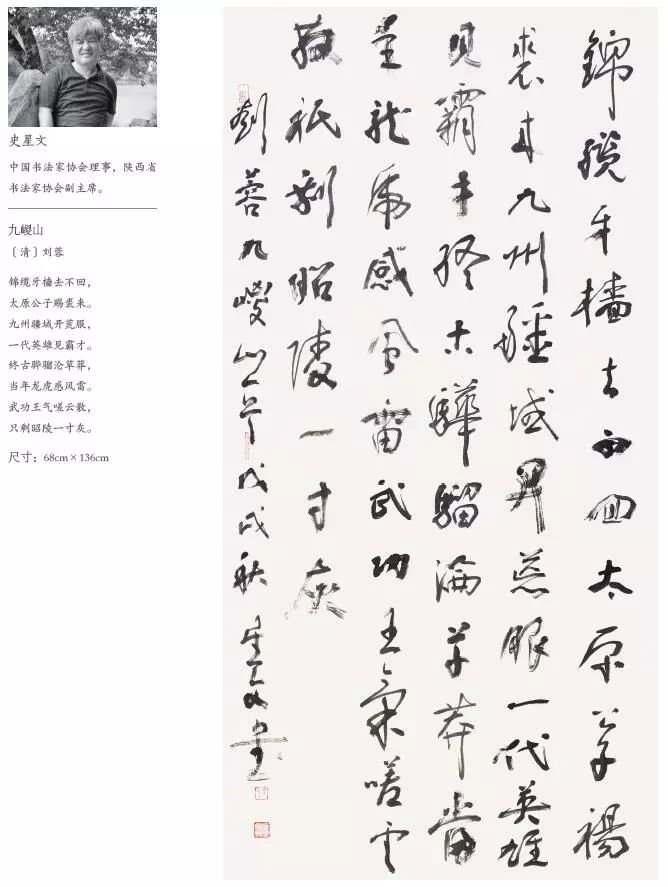 史星文
中国书法家协会理事，陕西省
书法家协会副主席。
九嵕山
〔清〕刘蓉
锦缆牙樯去不回，
太原公子裼裘来。
九州疆域开荒服，
一代英雄见霸才。
终古骅骝沦草莽，
当年龙虎感风雷。
武功王气嗟云散，
只剩昭陵一寸灰。
尺寸：68cm×136cm
錦纜牙檣去不回太原公子裼
裘来九州疆域開荒服一代英雄
見霸才終古驊騮淪草莽當
年龍虎感風雷武功王氣嗟云
散祇剩昭陵一寸灰
劉蓉九嵕山 戊戌秋星文書